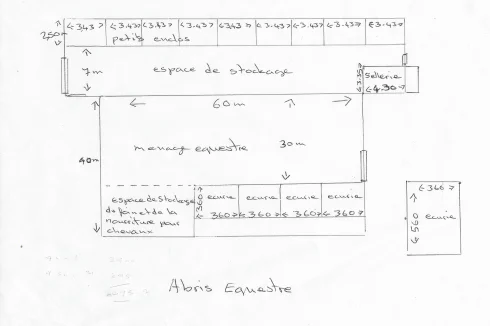 3.43 3.43 3.43 3.43 3.43 3.43 3.43 3.43 3.43
2,50
petits enclos
7m
espace de stockage
3.35
Sellerie
4.30
60m
40m
manege equestre
30m
espace de stockage
de foin et de la
nourriture pour
chevaux
360
ecurie ecurie ecurie ecurie
360 360 360 360
366
560
ecurie
Abris Equestre